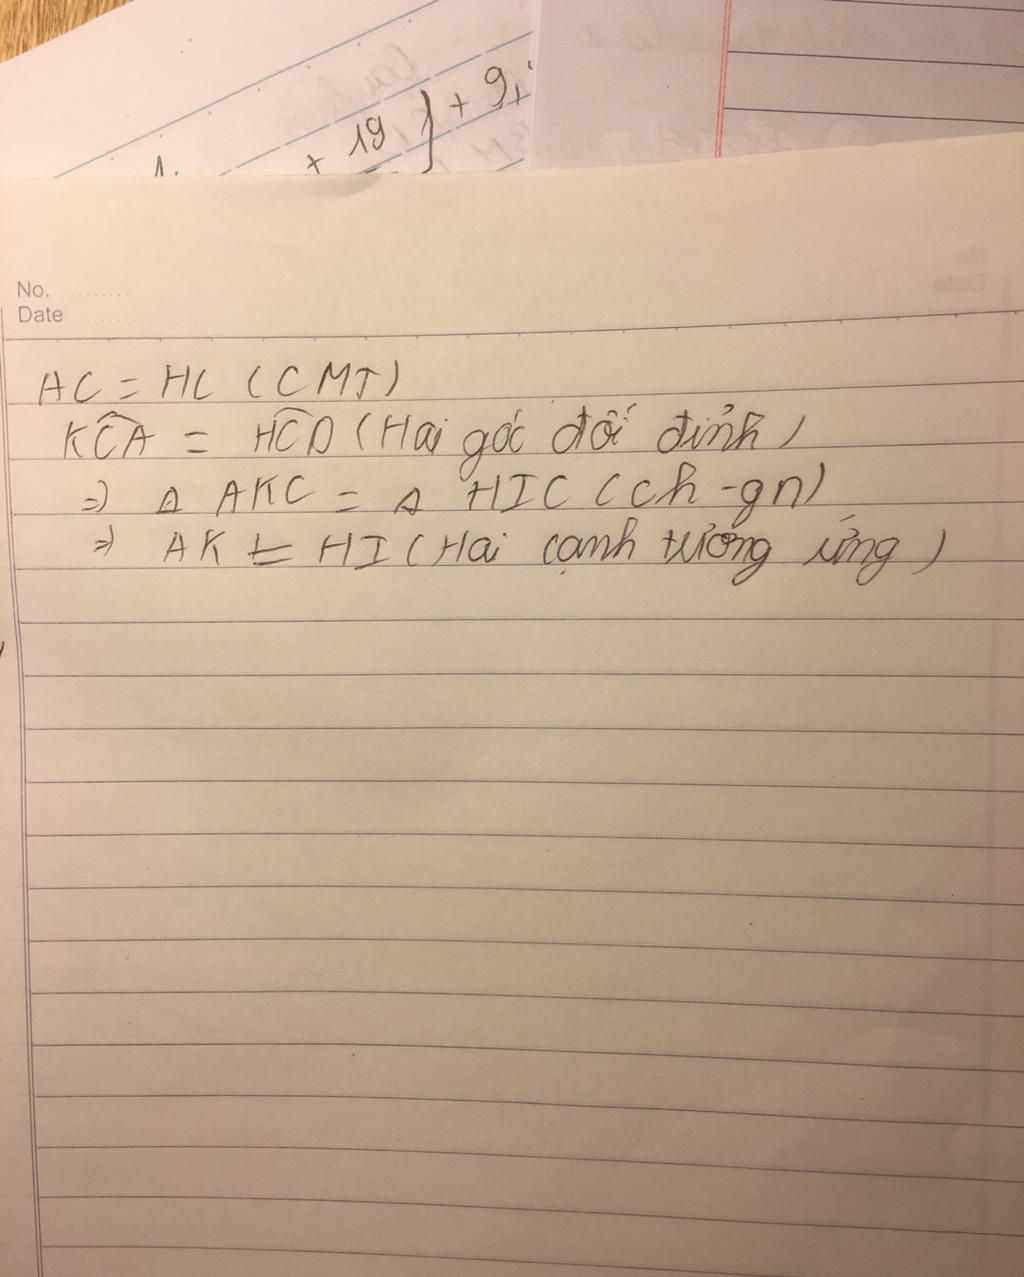 + 19 } + 9,
No.
Date
AC = HC (CMT)
KĈA = HĈD (Hai góc đối đỉnh)
=> Δ AKC = Δ HIC (ch - gn)
=> AK = HI (Hai cạnh tương ứng)